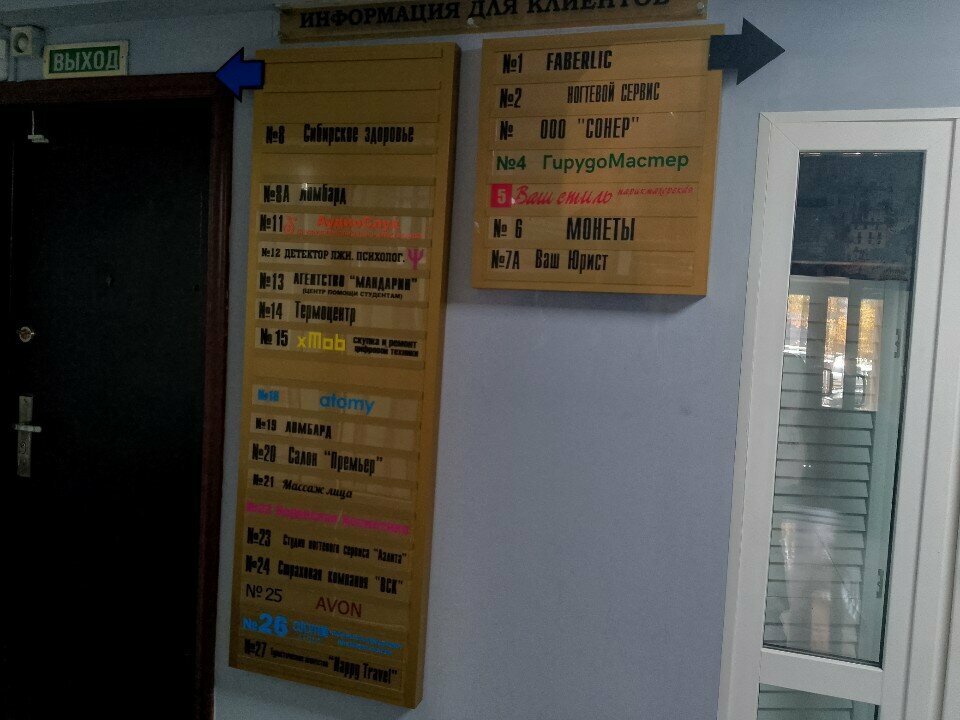 ИНФОРМАЦИЯ ДЛЯ КЛИЕНТОВ
ВЫХОД
№8 Сибирское здоровье
№8А Ломбард
№11 АудиоСоул
№12 ДЕТЕКТОР ЛЖИ. ПСИХОЛОГ.
№13 АГЕНТСТВО "МАНДАРИН"
(ЦЕНТР ПОМОЩИ СТУДЕНТАМ)
№14 Термоцентр
№15 xMob скупка и ремонт
цифровой техники
№18 atomy
№19 ЛОМБАРД
№20 Салон "Премьер"
№21 Массаж лица
№22
№23 Студия ногтевого сервиса "Аэлита"
№24 Страховая компания "ВСК"
№25 AVON
№26
№27 "Happy Travel"
№1 FABERLIC
№2 НОГТЕВОЙ СЕРВИС
№ ООО "СОНЕР"
№4 ГирудоМастер
5 Ваш стиль парикмахерская
№ 6 МОНЕТЫ
№7А Ваш Юрист